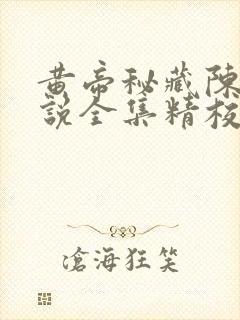 黄帝秘藏陳
說全集精校
滄海狂笑